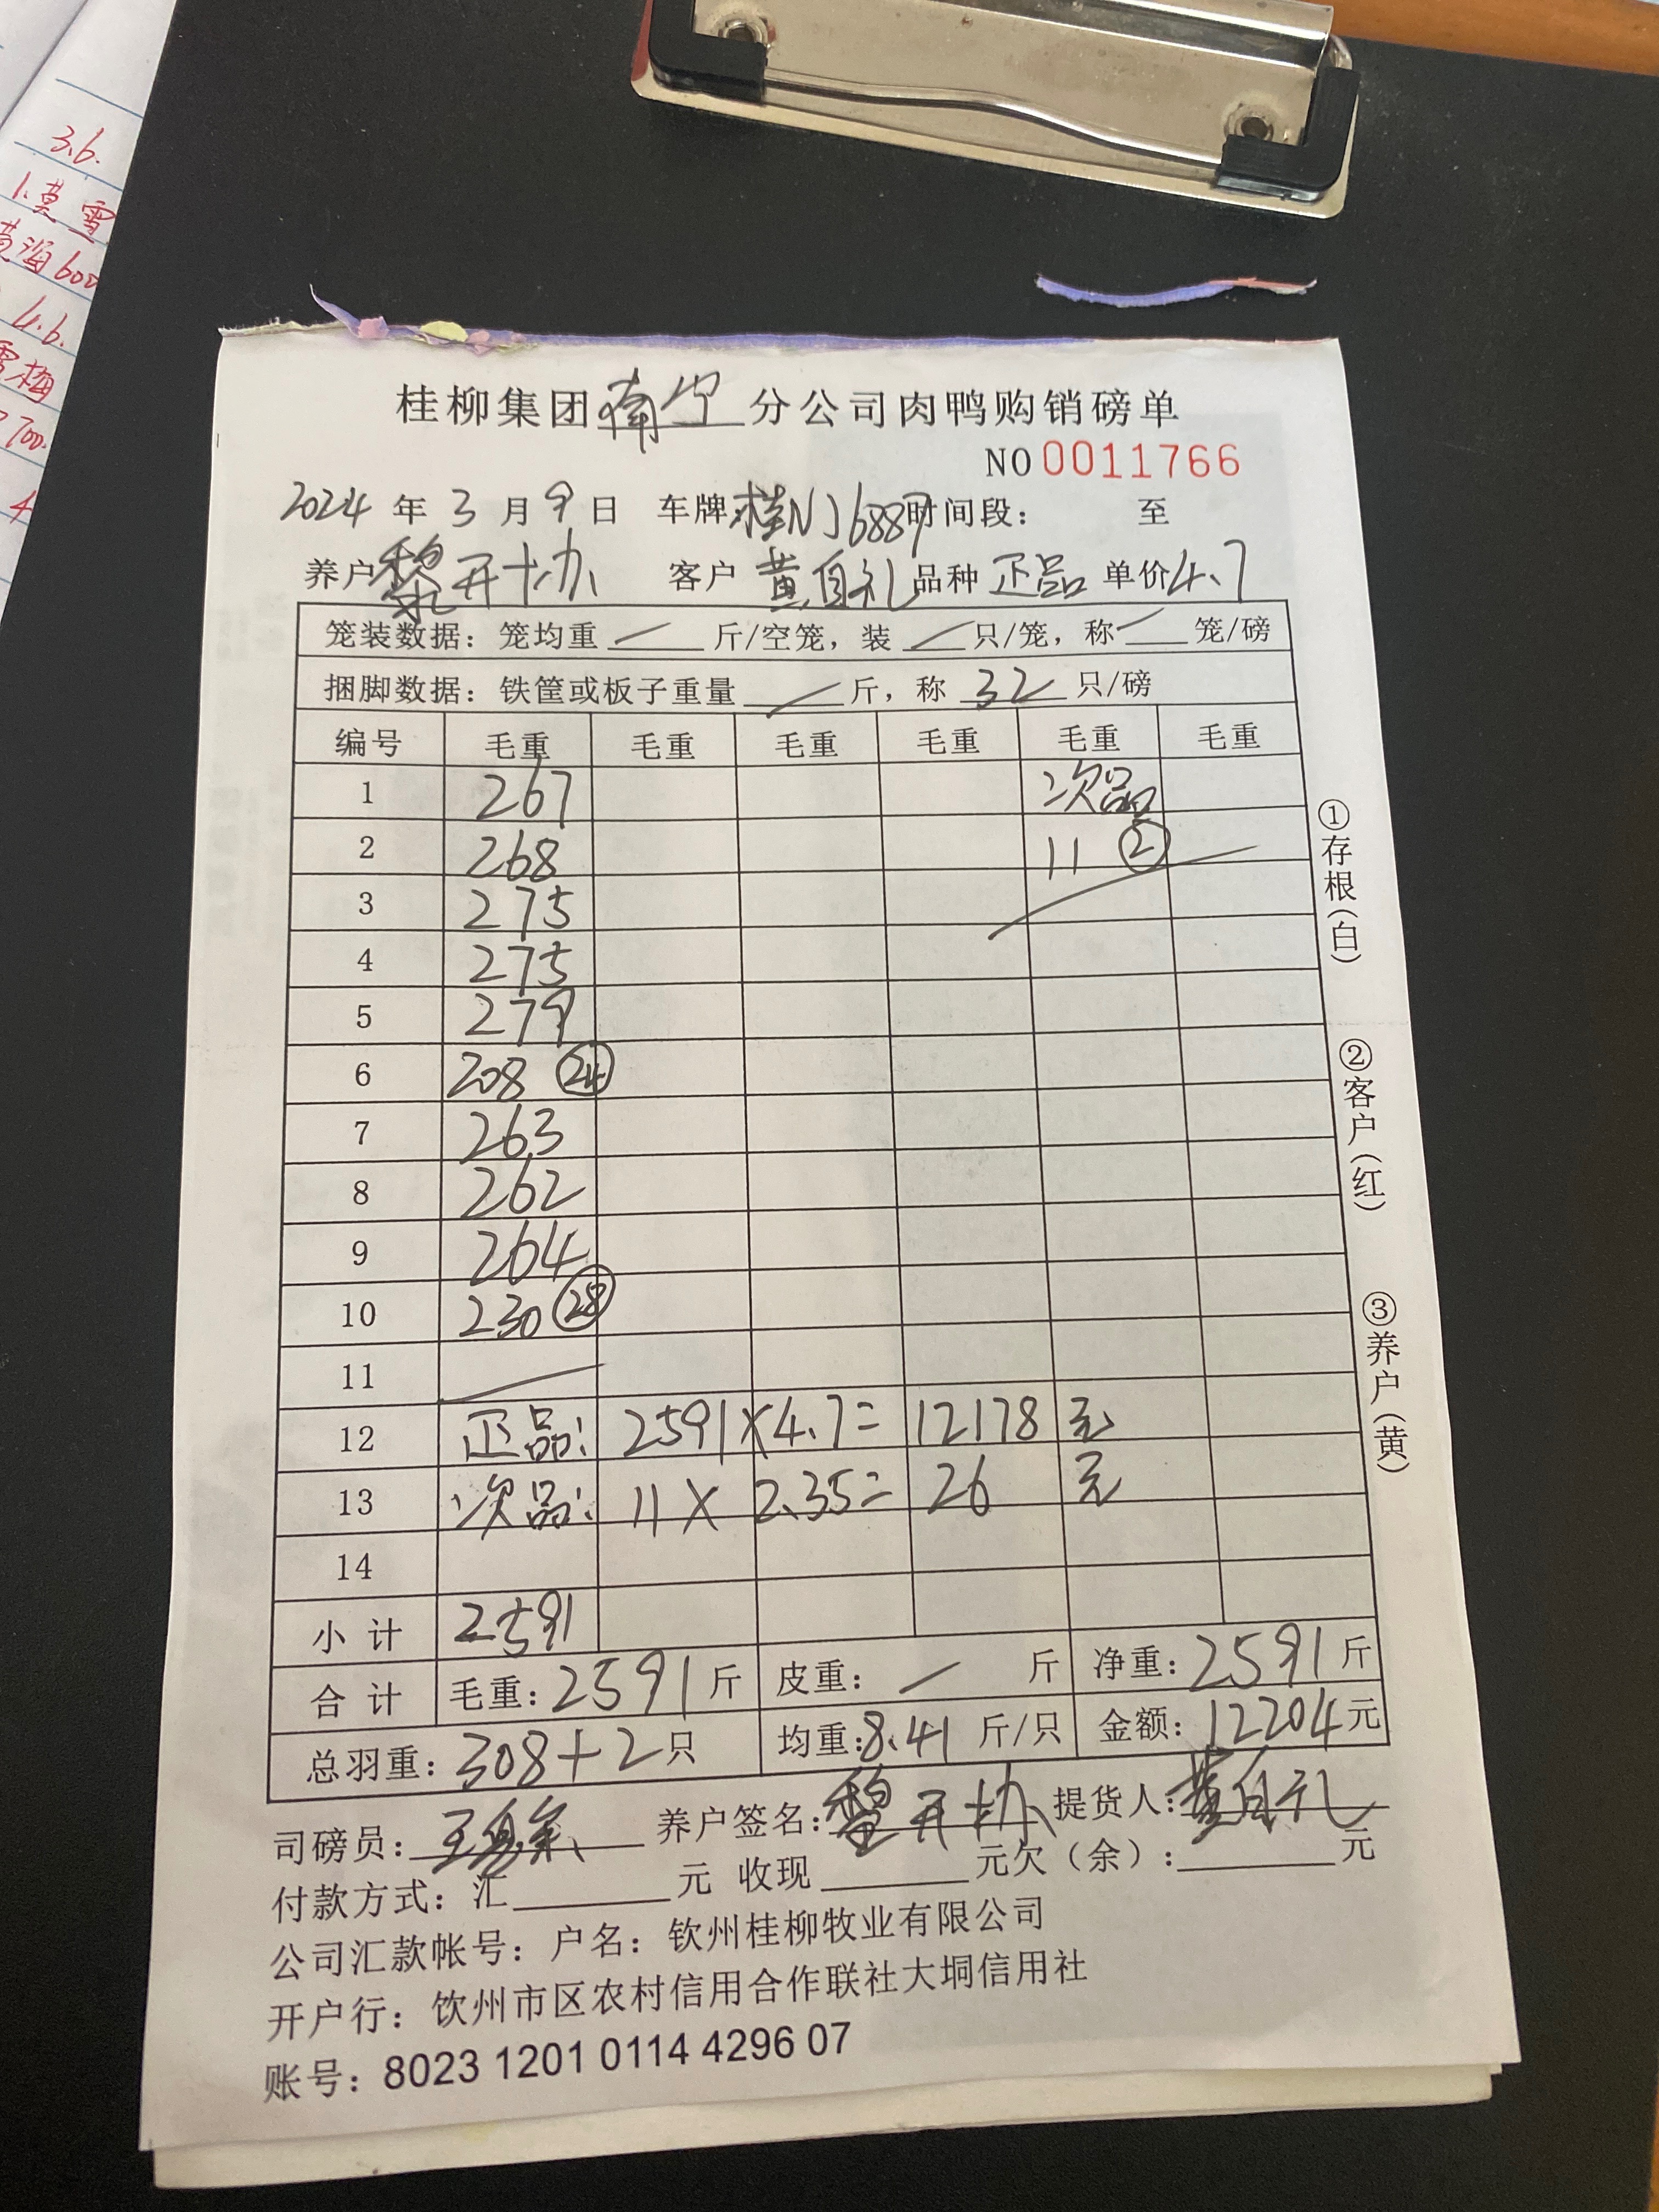 3.6.
1.莫雪
黄海600
4.6.
雪梅
700.
4
桂柳集团南宁分公司肉鸭购销磅单
NO 0011766
2024年3月9日 车牌:桂NJ6889 时间段: 至
养户 黎开协 客户 黄自礼 品种 正品 单价 4.7
笼装数据: 笼均重 — 斤/空笼, 装 — 只/笼, 称 — 笼/磅
捆脚数据: 铁筐或板子重量 — 斤, 称 32 只/磅
编号 毛重 毛重 毛重 毛重 毛重 毛重
1 267 次品
2 268 11 ②
3 275
4 275
5 279
6 208 ㉔
7 263
8 262
9 264
10 230 ㉘
11 —
12 正品: 2591×4.7= 12178 元
13 次品: 11× 2.35= 26 元
14
小计 2591
合计 毛重: 2591 斤 皮重: — 斤 净重: 2591 斤
总羽重: 308+2 只 均重: 8.41 斤/只 金额: 12204 元
司磅员: 养户签名: 黎开协 提货人: 黄自礼
付款方式: 汇 元 收现 元欠（余）: 元
公司汇款帐号: 户名: 钦州桂柳牧业有限公司
开户行: 钦州市区农村信用合作联社大垌信用社
账号: 8023 1201 0114 4296 07
①存根(白)
②客户(红)
③养户(黄)